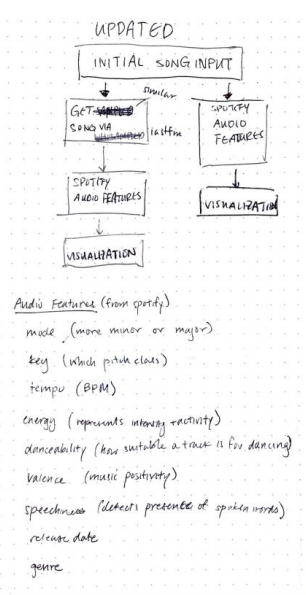 UPDATED
INITIAL SONG INPUT
similar
GET
SONG VIA
lastfm
SPOTIFY
AUDIO
FEATURES
SPOTIFY
AUDIO FEATURES
VISUALIZATION
VISUALIZATION
Audio Features (from spotify)
mode (more minor or major)
key (which pitch class)
tempo (BPM)
energy (represents intensity + activity)
danceability (how suitable a track is for dancing)
valence (music positivity)
speechiness (detects presence of spoken words)
release date
genre